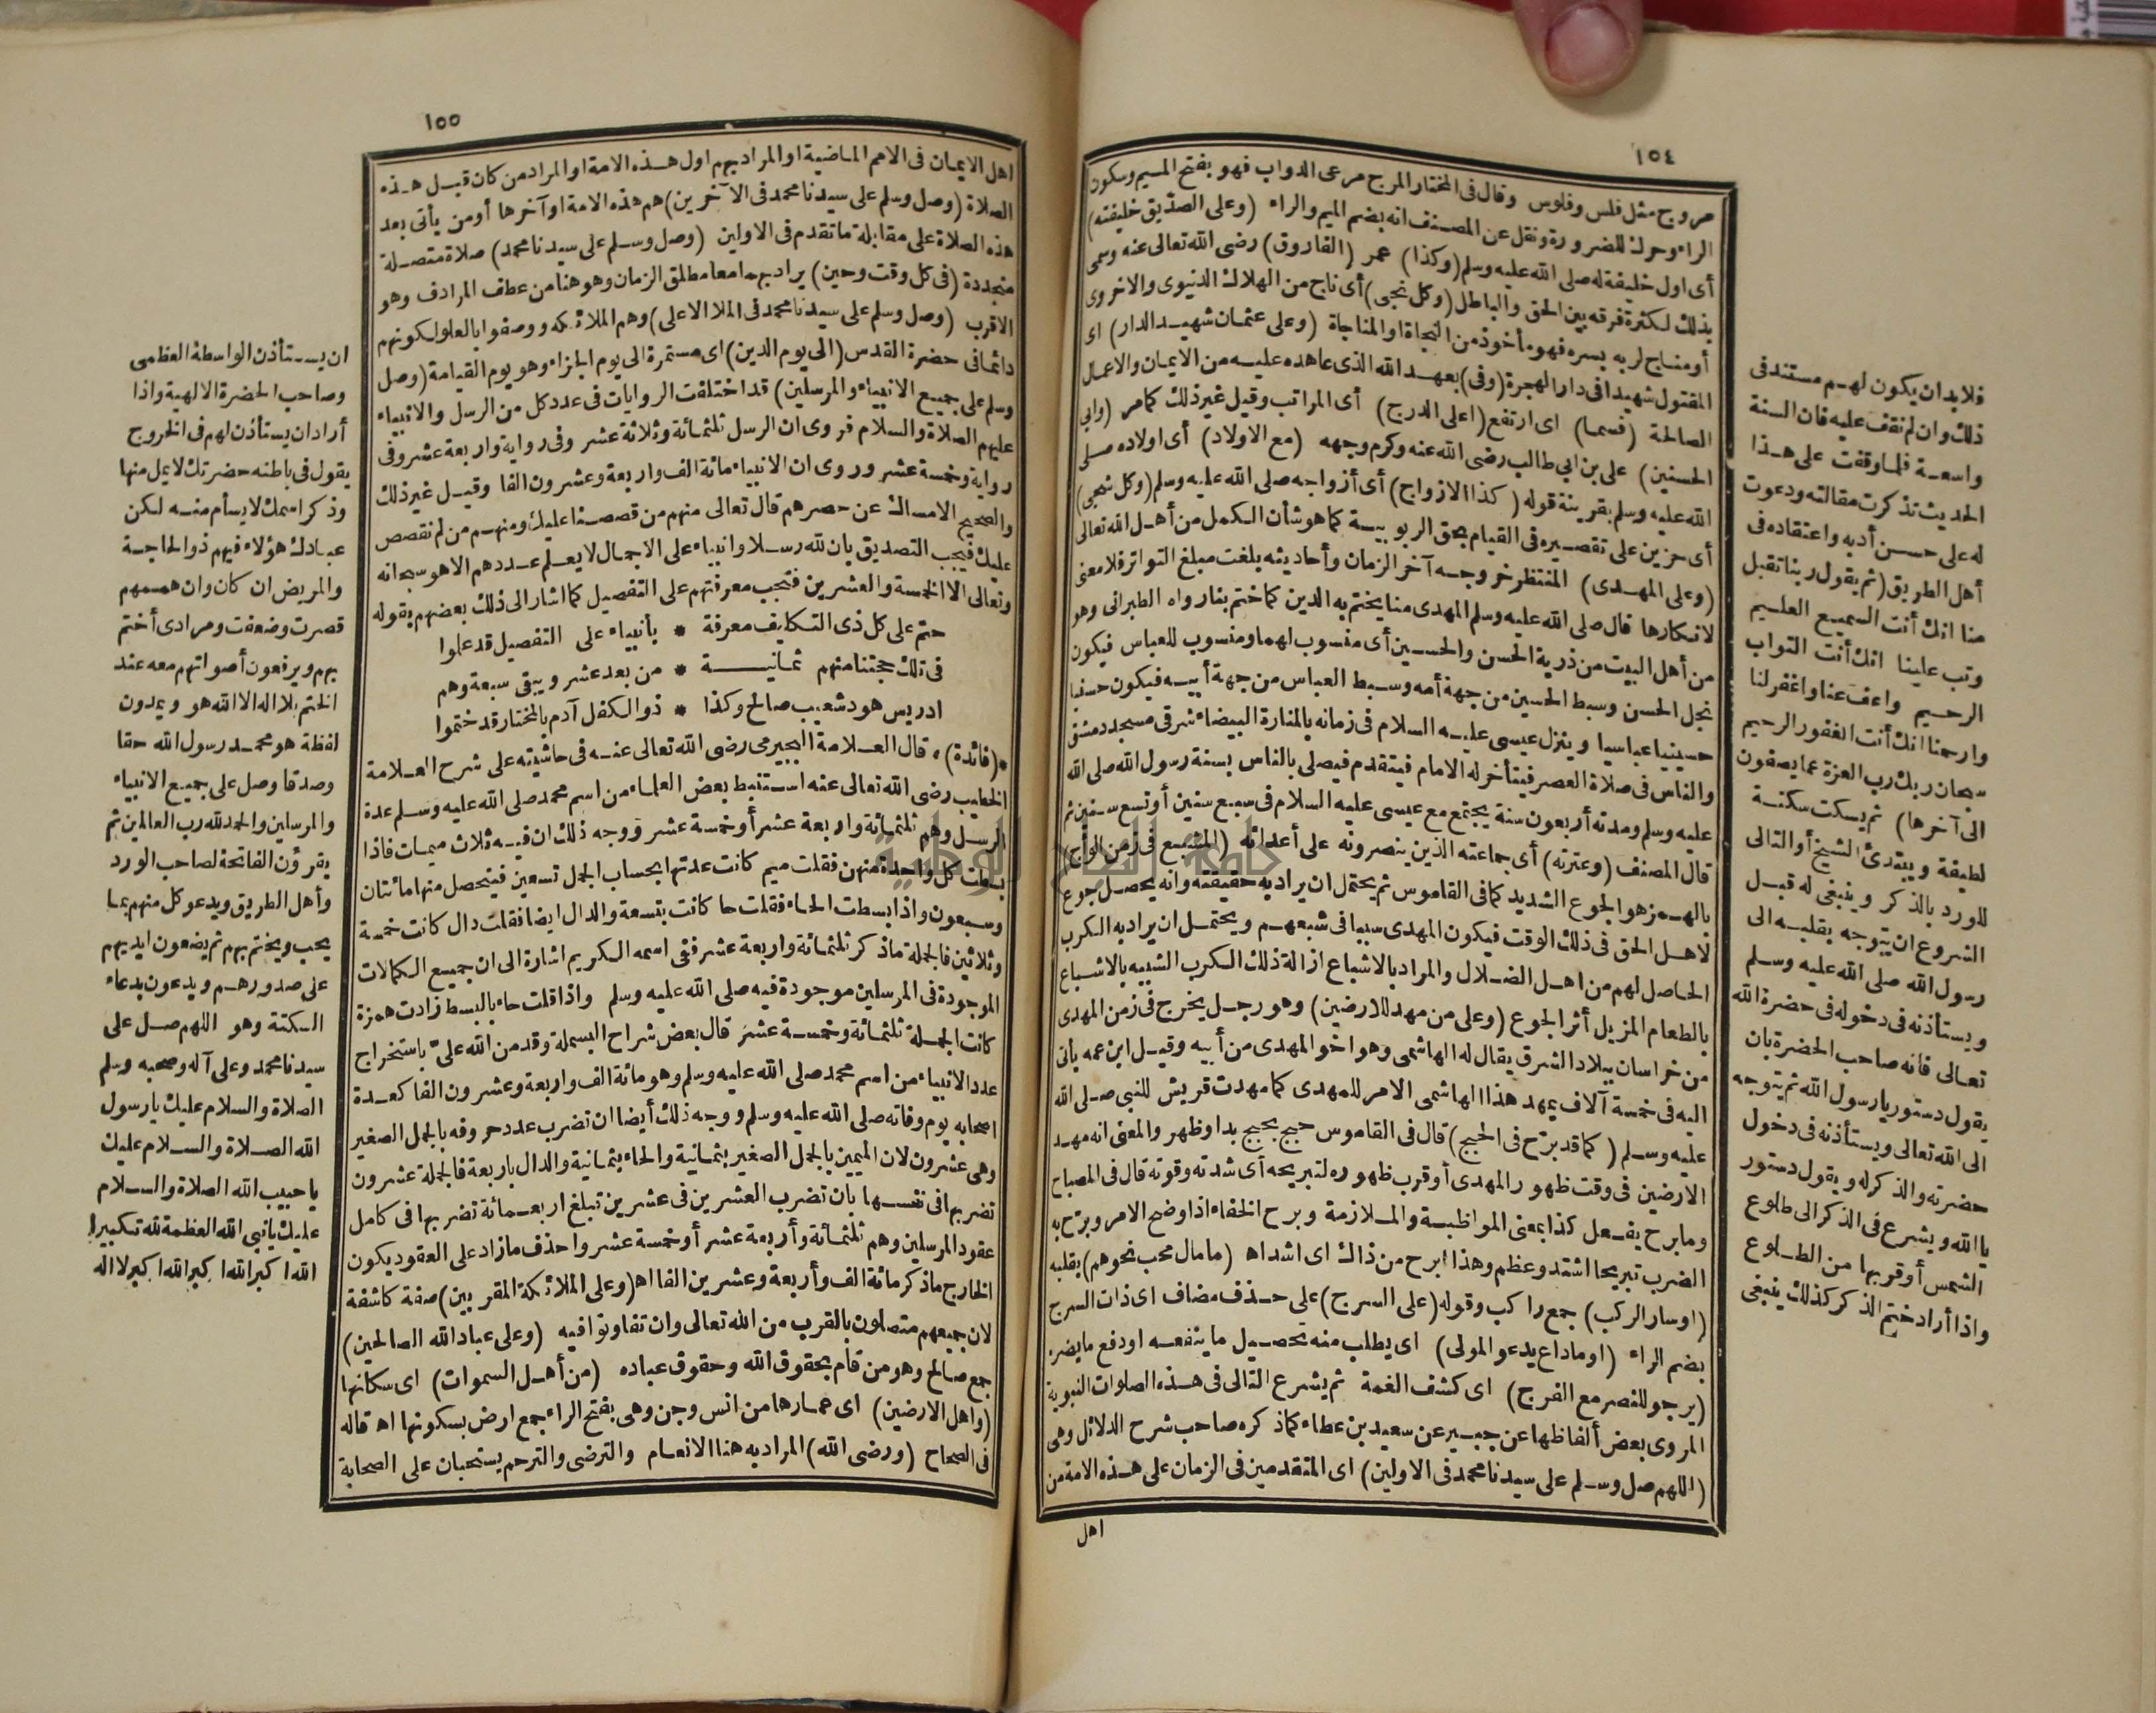 ١٥٤
مروج مثل فلس وفلوس وقال فى المختار المرج مرعى الدواب فهو بفتح الميم وسكون
الراء وحرك للضرورة ونقل عن المصنف انه بضم الميم والراء (وعلى الصدّيق خليفته)
أى اول خليفة له صلى الله عليه وسلم (وكذا) عمر (الفاروق) رضى الله تعالى عنه وسمى
بذلك لكثرة فرقه بين الحق والباطل (وكل نجى) أى ناج من الهلاك الدنيوى والاخروى
أو مناج لربه بسره فهو مأخوذ من النجاة او المناجاة (وعلى عثمان شهيد الدار) اى
المقتول شهيدا فى دار الهجرة (وفى) بعهد الله الذى عاهده عليه من الايمان والاعمال
الصالحة (فسما) اى ارتفع (اعلى الدرج) أى المراتب وقيل غير ذلك كما مر (وابى
الحسنين) على بن ابى طالب رضى الله عنه وكرم وجهه (مع الاولاد) أى اولاده صلى
الله عليه وسلم بقرينة قوله (كذا الازواج) أى أزواجه صلى الله عليه وسلم (وكل شجى)
أى حزين على تقصيره فى القيام بحق الربوبية كما هو شأن الكمل من أهل الله تعالى
(وعلى المهدى) المنتظر خروجه آخر الزمان وأحاديثه بلغت مبلغ التواتر فلا معنى
لانكارها قال صلى الله عليه وسلم المهدى منا يختم به الدين كما ختم بنا رواه الطبرانى وهو
من أهل البيت من ذرية الحسن والحسين أى منسوب لهما ومنسوب للعباس فيكون
نجل الحسن وسبط الحسين من جهة أمه وسبط العباس من جهة أبيه فيكون حسنيا
حسينيا عباسيا وينزل عيسى عليه السلام فى زمانه بالمنارة البيضاء شرقى مسجد دمشق
والناس فى صلاة العصر فيتأخر له الامام فيتقدم فيصلى بالناس بسنة رسول الله صلى الله
عليه وسلم ومدته أربعون سنة يجتمع مع عيسى عليه السلام فى سبع سنين أو تسع سنين ثم
قال المصنف (وعترته) أى جماعته الذين ينصرونه على أعدائه (المشبع فى زمن الوأج)
بالهمز هو الجوع الشديد كما فى القاموس ثم يحتمل ان يراد به حقيقته وانه يحصل جوع
لاهل الحق فى ذلك الوقت فيكون المهدى سببا فى شبعهم ويحتمل ان يراد به الكرب
الحاصل لهم من اهل الضلال والمراد بالاشباع ازالة ذلك الكرب الشبيه بالاشباع
بالطعام المزيل أثر الجوع (وعلى من مهد للارضين) وهو رجل يخرج فى زمن المهدى
من خراسان ببلاد الشرق يقال له الهاشمى وهو اخو المهدى من أبيه وقيل ابن عمه يأتى
اليه فى خمسة آلاف يمهد هذا الهاشمى الامر للمهدى كما مهدت قريش للنبى صلى الله
عليه وسلم (كما قد برّح فى الحجج) قال فى القاموس حجج بحجج بدا وظهر والمعنى انه مهد
الارضين فى وقت ظهور المهدى أو قرب ظهوره لتبريحه أى شدته وقوته قال فى المصباح
وما برح يفعل كذا بمعنى المواظبة والملازمة وبرح الخفاء اذا وضح الامر وبرّح به
الضرب تبريحا اشتد وعظم وهذا ابرح من ذاك اى اشد اه (ما مال محب نحوهم) بقلبه
(او سار الركب) جمع راكب وقوله (على السرج) على حذف مضاف اى ذات السرج
بضم الراء (او ما داع يدعو المولى) اى يطلب منه تحصيل ما ينفعه او دفع ما يضره
(يرجو للنصر مع الفرج) اى كشف الغمة ثم يشرع التالى فى هذه الصلوات النبوية
المروى بعض ألفاظها عن جبير عن سعيد بن عطاء كما ذكره صاحب شرح الدلائل وهى
(اللهم صل وسلم على سيدنا محمد فى الاولين) اى المتقدمين فى الزمان على هذه الامة من
اهل
فلابد ان يكون لهم مستند فى
ذلك وان لم نقف عليه فان السنة
واسعة فلما وقفت على هذا
الحديث تذكرت مقالته ودعوت
له على حسن أدبه واعتقاده فى
أهل الطريق (ثم يقول ربنا تقبل
منا انك أنت السميع العليم
وتب علينا انك أنت التواب
الرحيم واعف عنا واغفر لنا
وارحمنا انك أنت الغفور الرحيم
سبحان ربك رب العزة عما يصفون
الى آخرها) ثم يسكت سكتة
لطيفة ويبتدئ الشيخ أو التالى
للورد بالذكر وينبغى له قبل
الشروع ان يتوجه بقلبه الى
رسول الله صلى الله عليه وسلم
ويستأذنه فى دخوله فى حضرة الله
تعالى فانه صاحب الحضرة بان
يقول دستور يا رسول الله ثم يتوجه
الى الله تعالى ويستأذنه فى دخول
حضرته والذكر له ويقول دستور
يا الله ويشرع فى الذكر الى طلوع
الشمس أو قربها من الطلوع
واذا أراد ختم الذكر كذلك ينبغى
١٥٥
اهل الايمان فى الامم الماضية او المراد بهم اول هذه الامة او المراد من كان قبل هذه
الصلاة (وصل وسلم على سيدنا محمد فى الآخرين) هم هذه الامة او آخرها أو من يأتى بعد
هذه الصلاة على مقابلة ما تقدم فى الاولين (وصل وسلم على سيدنا محمد) صلاة متصلة
متجددة (فى كل وقت وحين) يراد بهما معا مطلق الزمان وهو هنا من عطف المرادف وهو
الاقرب (وصل وسلم على سيدنا محمد فى الملا الاعلى) وهم الملائكة ووصفوا بالعلو لكونهم
دائما فى حضرة القدس (الى يوم الدين) اى مستمرة الى يوم الجزاء وهو يوم القيامة (وصل
وسلم على جميع الانبياء والمرسلين) قد اختلفت الروايات فى عدد كل من الرسل والانبياء
عليهم الصلاة والسلام فروى ان الرسل ثلثمائة وثلاثة عشر وفى رواية واربعة عشر وفى
رواية وخمسة عشر وروى ان الانبياء مائة الف واربعة وعشرون الفا وقيل غير ذلك
والصحيح الامساك عن حصرهم قال تعالى منهم من قصصنا عليك ومنهم من لم نقصص
عليك فيجب التصديق بان لله رسلا وانبياء على الاجمال لا يعلم عددهم الا هو سبحانه
وتعالى الا الخمسة والعشرين فتجب معرفتهم على التفصيل كما اشار الى ذلك بعضهم بقوله
حتم على كل ذى التكليف معرفة * بأنبياء على التفصيل قد علموا
فى تلك حجتنا منهم ثمانية * من بعد عشر ويبقى سبعة وهم
ادريس هود شعيب صالح وكذا * ذو الكفل آدم بالمختار قد ختموا
*(فائدة)* قال العلامة البجيرمى رضى الله تعالى عنه فى حاشيته على شرح العلامة
الخطيب رضى الله تعالى عنه استنبط بعض العلماء من اسم محمد صلى الله عليه وسلم عدة
الرسل وهم ثلثمائة واربعة عشر أو خمسة عشر ووجه ذلك ان فيه ثلاث ميمات فاذا
بسطت كل واحدة منهن فقلت ميم كانت عدتها بحساب الجمل تسعين فيتحصل منها مائتان
وسبعون واذا بسطت الحاء فقلت حا كانت بتسعة والدال ايضا فقلت دال كانت خمسة
وثلاثين فالجملة ما ذكر ثلثمائة واربعة عشر ففى اسمه الكريم اشارة الى ان جميع الكمالات
الموجودة فى المرسلين موجودة فيه صلى الله عليه وسلم واذا قلت حاء بالبسط زادت همزة
كانت الجملة ثلثمائة وخمسة عشر قال بعض شراح البسملة وقد من الله علىّ باستخراج
عدد الانبياء من اسم محمد صلى الله عليه وسلم وهو مائة الف واربعة وعشرون الفا كعدة
اصحابه يوم وفاته صلى الله عليه وسلم ووجه ذلك أيضا ان تضرب عدد حروفه بالجمل الصغير
وهى عشرون لان الميمين بالجمل الصغير بثمانية والحاء بثمانية والدال باربعة فالجملة عشرون
تضربها فى نفسها بان تضرب العشرين فى عشرين تبلغ اربعمائة تضربها فى كامل
عقود المرسلين وهم ثلثمائة وأربعة عشر أو خمسة عشر واحذف ما زاد على العقود يكون
الخارج ما ذكر مائة الف وأربعة وعشرين الفا اه (وعلى الملائكة المقربين) صفة كاشفة
لان جميعهم متصلون بالقرب من الله تعالى وان تفاوتوا فيه (وعلى عباد الله الصالحين)
جمع صالح وهو من قام بحقوق الله وحقوق عباده (من أهل السموات) اى سكانها
(واهل الارضين) اى عمارها من انس وجن وهى بفتح الراء جمع ارض بسكونها اه قاله
فى الصحاح (ورضى الله) المراد به هنا الانعام والترضى والترحم يستحبان على الصحابة
ان يستأذن الواسطة العظمى
وصاحب الحضرة الالهية واذا
أراد ان يستأذن لهم فى الخروج
يقول فى باطنه حضرتك لا يمل منها
وذكر اسمك لا يسأم منه لكن
عبادك هؤلاء فيهم ذو الحاجة
والمريض ان كان وان هممهم
قصرت وضعفت ومرادى أختم
بهم ويرفعون أصواتهم معه عند
الختم بلا اله الا الله هو ويمدون
لفظة هو محمد رسول الله حقا
وصدقا وصل على جميع الانبياء
والمرسلين والحمد لله رب العالمين ثم
يقرؤن الفاتحة لصاحب الورد
وأهل الطريق ويدعو كل منهم بما
يحب ويختم بهم ثم يضعون ايديهم
على صدورهم ويدعون بدعاء
السكتة وهو اللهم صل على
سيدنا محمد وعلى آله وصحبه وسلم
الصلاة والسلام عليك يا رسول
الله الصلاة والسلام عليك
يا حبيب الله الصلاة والسلام
عليك يا نبى الله العظمة لله تكبيرا
الله اكبر الله اكبر الله اكبر لا اله
جامعة النجاح الوطنية